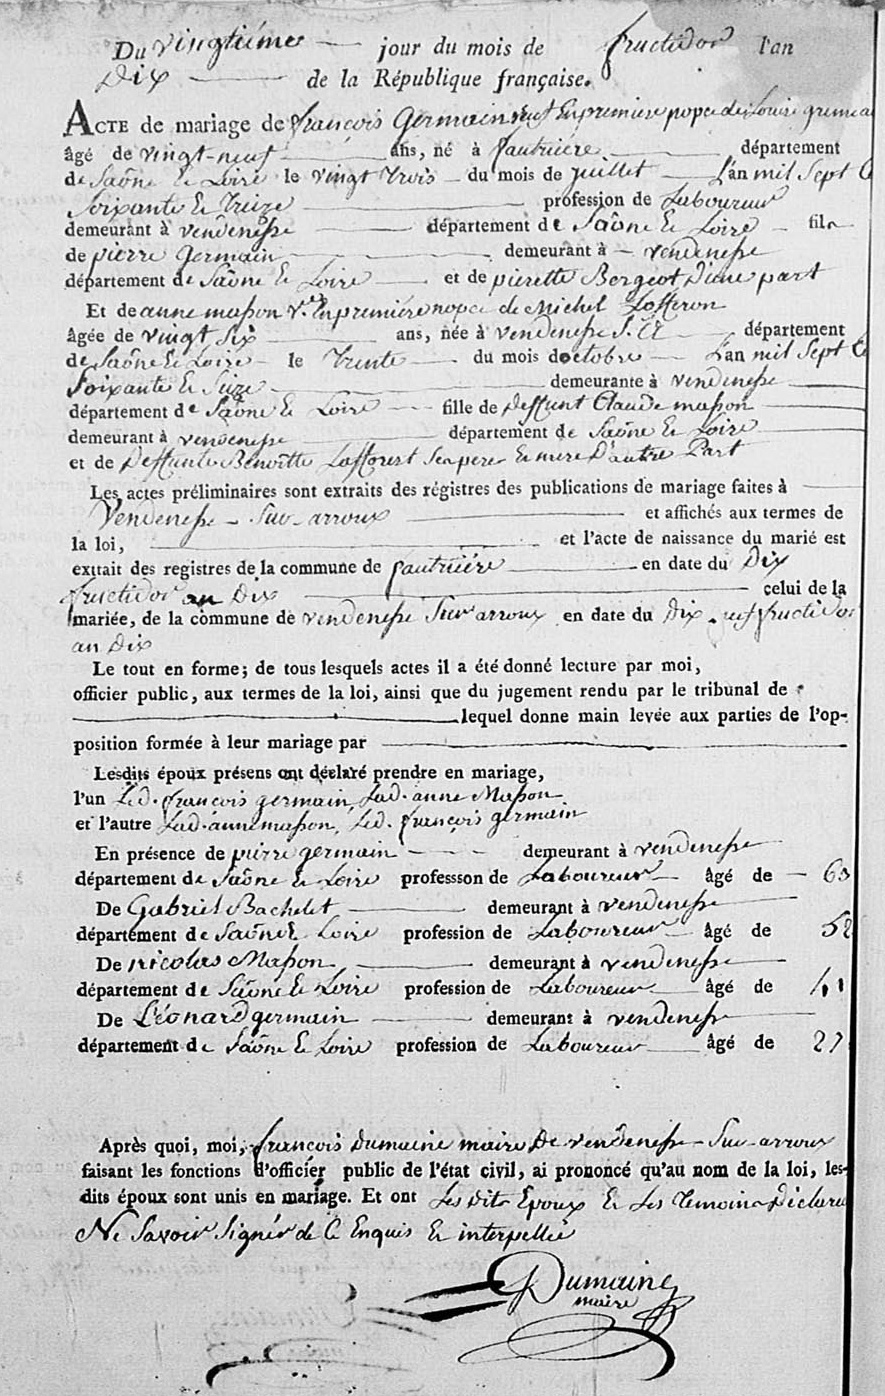 Du vingtième jour du mois de fructidor l'an
Dix de la République française.
ACTE de mariage de françois Germain veuf En première nopce de Louise
âgé de vingt-neuf ans, né à Gautriere département
de Saône Et Loire le vingt trois du mois de juillet L'an mil Sept C
Soixante Et treize profession de Laboureur
demeurant à vendenesse département de Saône Et Loire fils
de pierre Germain demeurant à vendenesse
département de Saône Et Loire et de pierette Bergeot D'une part
Et de anne masson v.e En première nopce de Michel Lofferon
âgée de vingt Six ans, née à vendenesse S. A département
de Saône Et Loire le trente du mois d'octobre L'an mil Sept C
Soixante Et Seize demeurante à vendenesse
département de Saône Et Loire fille de Deffunt Claude masson
demeurant à vendenesse département de Saône Et Loire
et de Deffunte Benoitte Lafforest Ses pere Et mere D'autre Part
Les actes préliminaires sont extraits des régistres des publications de mariage faites à
Vendenesse Sur arroux et affichés aux termes de
la loi, et l'acte de naissance du marié est
extrait des registres de la commune de Gautriére en date du Dix
fructidor an Dix celui de la
mariée, de la commune de vendenesse Sur arroux en date du Dix neuf fructidor
an Dix
Le tout en forme; de tous lesquels actes il a été donné lecture par moi,
officier public, aux termes de la loi, ainsi que du jugement rendu par le tribunal de
lequel donne main levée aux parties de l'op-
position formée à leur mariage par
Lesdits époux présens ont déclaré prendre en mariage,
l'un Led. françois germain, Lad. anne Masson
et l'autre Lad. anne masson, Led. françois germain
En présence de pierre germain demeurant à vendenesse
département de Saône Et Loire professson de Laboureur âgé de 63
De Gabriel Bachelet demeurant à vendenesse
département de Saône Et Loire profession de Laboureur âgé de 52
De nicolas Masson demeurant à vendenesse
département de Saône Et Loire profession de Laboureur âgé de 41
De Léonard germain demeurant à vendenesse
département de Saône Et Loire profession de Laboureur âgé de 27
Après quoi, moi, françois Dumaine maire De vendenesse Sur arroux
faisant les fonctions d'officier public de l'état civil, ai prononcé qu'au nom de la loi, les-
dits époux sont unis en mariage. Et ont Les Dits Epoux Et Les temoins Déclaré
Ne Savoir Signér de Ce Enquis Et interpellé
Dumaine
maire